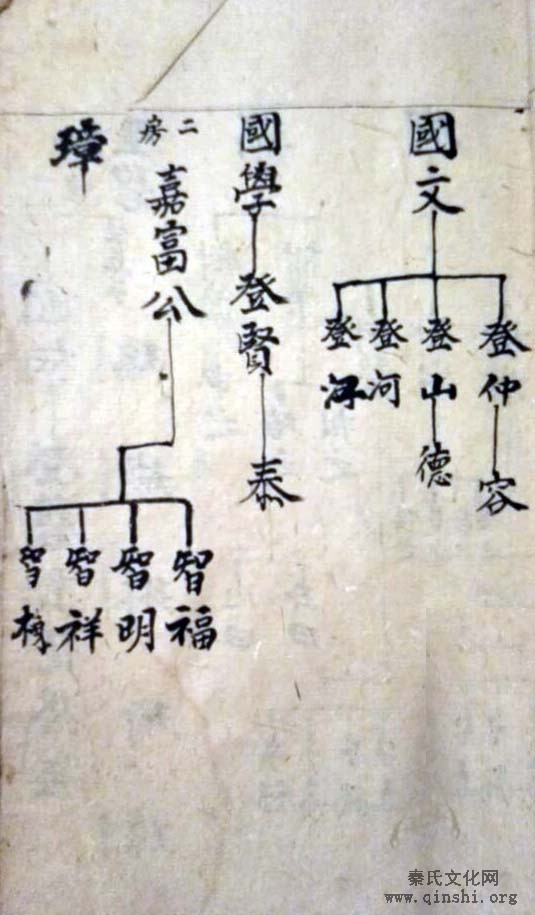 國文
登仲
容
登山
德
登河
登
國學
登賢
泰
二房
嘉富公
智福
智明
智祥
智
璋
秦氏文化网
www.qinshi.org